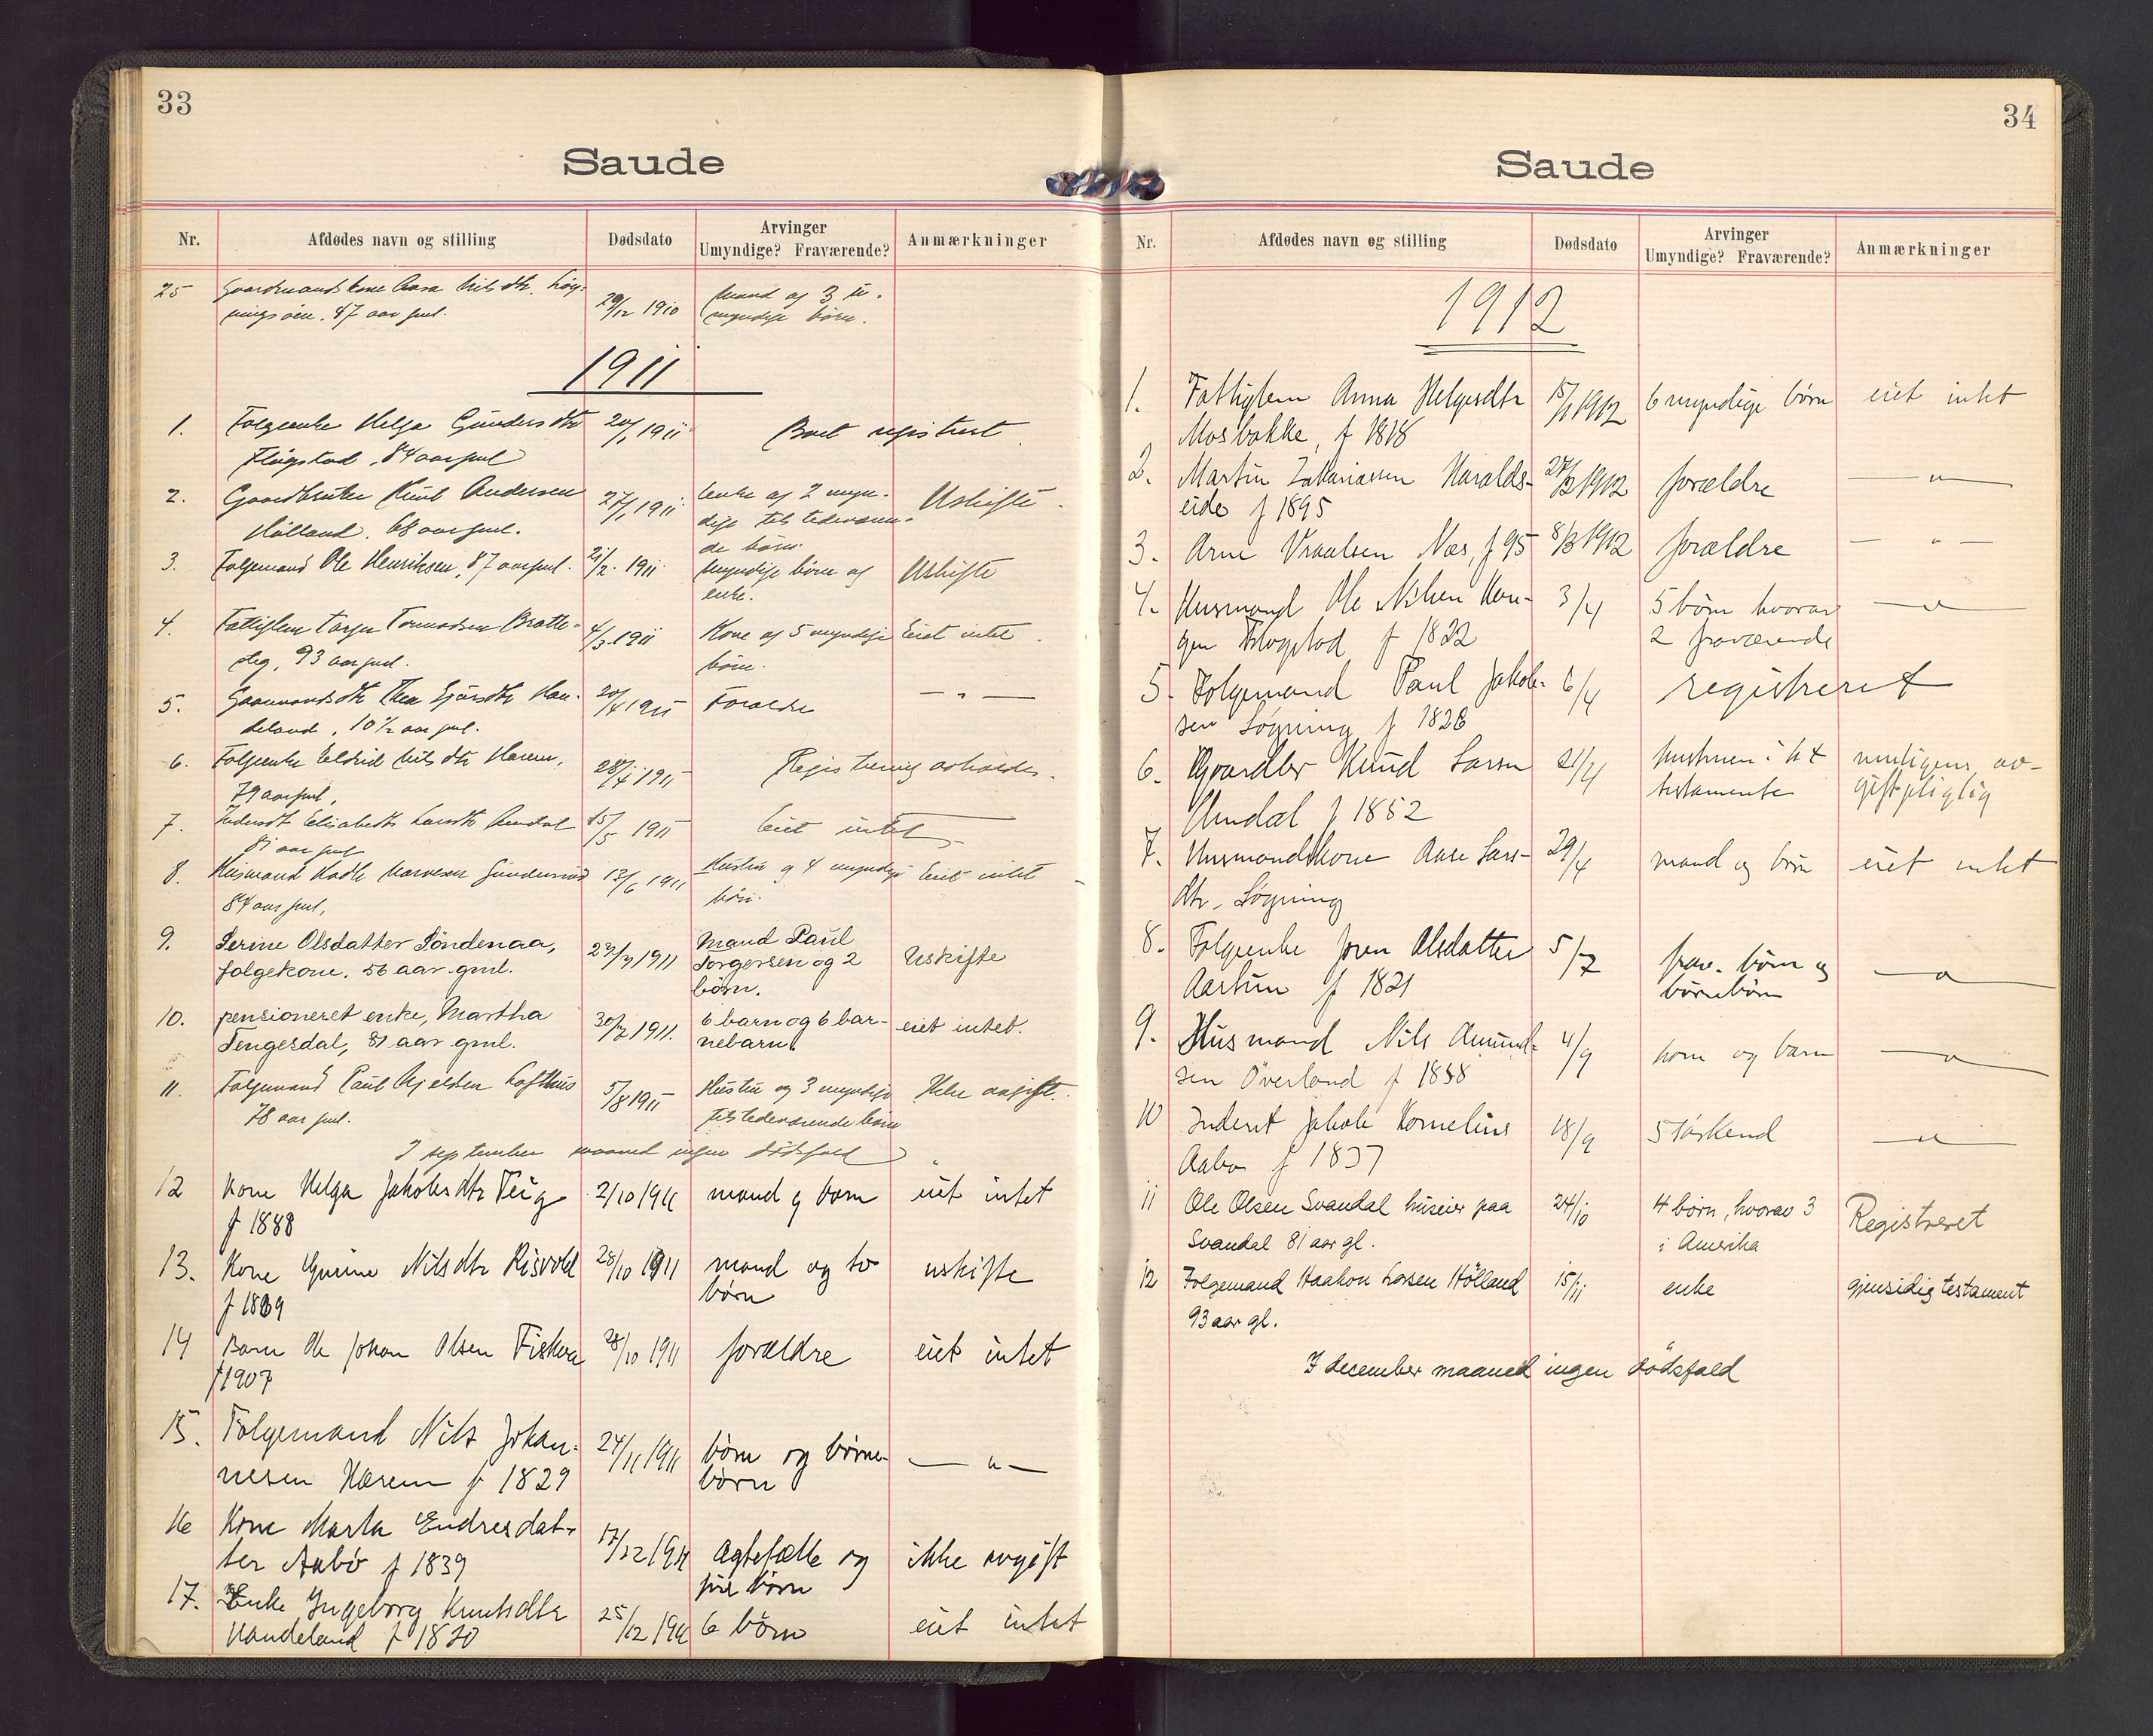 33
Saude
Nr. Afdødes navn og stilling Dødsdato Arvinger Umyndige? Fraværende? Anmærkninger
25 Gaardmandskone Aasa Nilsdtr. Løg-
ningsøen. 47 aar gml. 29/12 1910 Mand og 3 u-
myndige børn.
1911
1. Folgeenke Helga Gundersdtr 20/1 1911 Boet registrert
Fløgstad, 84 aar gml
2. Gaardbruker Knut Andersen 27/1 1911 Enke og 2 myn- Uskifte
Hølland. 68 aar gml. dige tilstedeværen-
de børn.
3. Folgemand Ole Henriksen, 87 aar gml. 21/2. 1911 Myndige børn og Uskifte
enke.
4. Fattiglem Tormodsen Bratte- 4/3. 1911 Kone og 5 myndige Eiet intet
steg, 93 aar gml. børn.
5. Thea 20/4 1911 Forældre — " —
deland, 10½ aar gml.
6. Folgeenke Eldrid Nilsdtr Herem, 28/4 1911 Registrering avholdes.
79 aar gml.
7. Inderst Elisabeth Larsdtr Amdal 15/5 1911 Eiet intet
81 aar gml
8. Husmand 13/6 1911 Hustru og 4 myndige Eiet intet
84 aar gml, børn.
9. Serine Olsdatter Søndenaa, 23/7 1911 Mand Paul Uskifte
folgekone, 56 aar gml. Torgersen og 2
børn.
10. pensioneret enke, Martha 30/7 1911. 6 barn og 6 bar- eiet intet.
Tengesdal, 81 aar gml. nebarn.
11. Folgemand Paul Kjeldsen Lofthus 5/8 1911 Hustru og 3 myndige Ikke avgift.
78 aar gml. tilstedeværende børn
I september maaned ingen dødsfald
12 Kone Helga Jakobsdtr Teig 2/10 1911 mand og barn eiet intet
f 1888
13. Kone Gurine Nilsdtr Risvold 28/10 1911 mand og to uskifte
f 1869 børn
14 Barn Ole Johan Olsen Fiskaa 28/10 1911 forældre eiet intet
f 1907
15. Folgemand Nils Johan- 24/11 1911 børn og børne- — " —
nesen Herem f 1829 børn
16 Kone Marta Endresdat- 17/12 1911 Ægtefælle og ikke avgift
ter Aabø f 1839 fire børn
17. Enke Ingeborg Knutsdtr 25/12 1911 6 børn eiet intet
Handeland f 1820
34
Saude
Nr. Afdødes navn og stilling Dødsdato Arvinger Umyndige? Fraværende? Anmærkninger
1912
1. Fattiglem Anna Helgesdtr 15/1 1912 6 myndige børn eiet intet
Mosbakke, f 1818
2. Martin Zakariassen Haralds- 27/2 1912 forældre — " —
eide f 1895
3. Arne Vraalsen Næs, f 95 8/3 1912 forældre — " —
4. Husmand Ole Nilsen Hau- 3/4 5 børn hvorav — " —
gen Fløgstad f 1822 2 fraværende
5. Folgemand Paul Jakob- 6/4 registreret
sen Løgning f 1828
6. Gaardbr Knud Larsen 21/4 hustruen i h t muligens av-
Amdal f 1852 testamente giftspligtig
7. Husmandskone Aase Lars- 29/4 mand og børn eiet intet
dtr. Løgning
8. Folgeenke Joren Olsdatter 5/7 frav. børn og — " —
Aartun f 1821 børnebørn
9. Husmand Nils Amund- 4/9 kone og barn — " —
sen Øverland f 1838
10 Inderst Jakob Kornelius 18/9 5 søskend — " —
Aabø f 1837
11 Ole Olsen Svandal huseier paa 24/10 4 børn, hvorav 3 Registreret
Svandal 81 aar gl. i Amerika
12 Folgemand Haakon Larsen Hölland 15/11 enke gjensidig testament
93 aar gl.
I december maaned ingen dødsfald